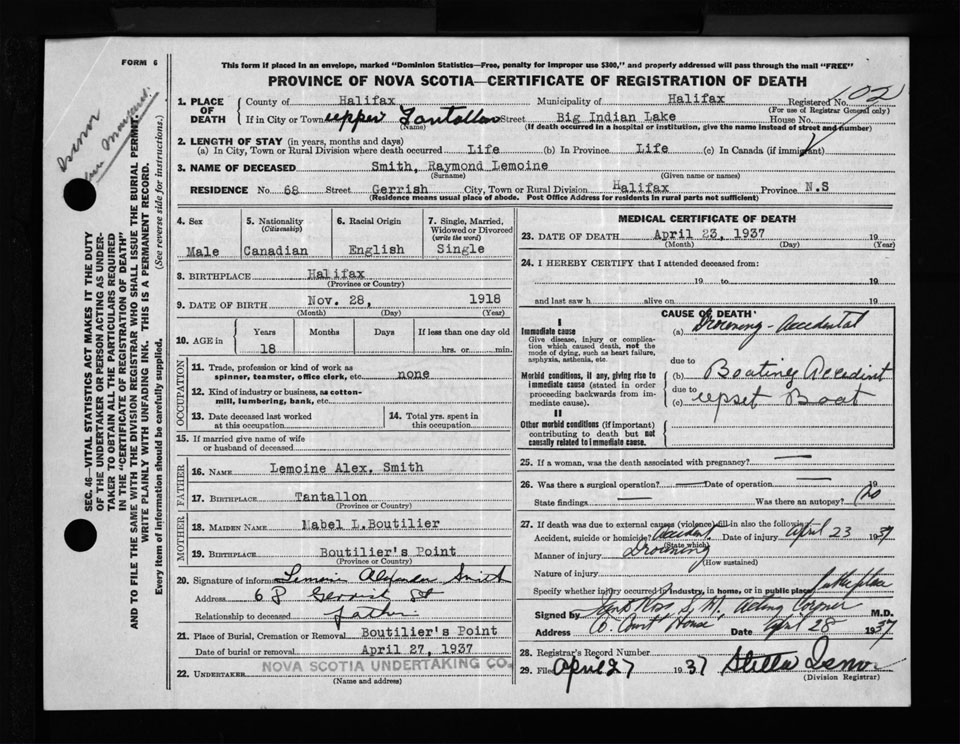 FORM 6
This form if placed in an envelope, marked "Dominion Statistics—Free, penalty for improper use $300," and properly addressed will pass through the mail "FREE"
PROVINCE OF NOVA SCOTIA—CERTIFICATE OF REGISTRATION OF DEATH
1. PLACE OF DEATH
County of Halifax Municipality of Halifax Registered No. 102
(For use of Registrar General only)
If in City or Town upper Tantallon Street Big Indian Lake House No.
(Name) (If death occurred in a hospital or institution, give the name instead of street and number)
2. LENGTH OF STAY (in years, months and days)
(a) In City, Town or Rural Division where death occurred Life (b) In Province Life (c) In Canada (if immigrant)
3. NAME OF DECEASED Smith, Raymond Lemoine
(Surname) (Given name or names)
RESIDENCE No. 68 Street Gerrish City, Town or Rural Division Halifax Province N.S
(Residence means usual place of abode. Post Office Address for residents in rural parts not sufficient)
4. Sex Male
5. Nationality (Citizenship) Canadian
6. Racial Origin English
7. Single, Married, Widowed or Divorced (write the word) Single
8. BIRTHPLACE Halifax
(Province or Country)
9. DATE OF BIRTH Nov. 28, 1918
(Month) (Day) (Year)
10. AGE in Years Months Days If less than one day old
18 hrs. or min.
OCCUPATION
11. Trade, profession or kind of work as spinner, teamster, office clerk, etc. none
12. Kind of industry or business, as cotton-mill, lumbering, bank, etc.
13. Date deceased last worked at this occupation
14. Total yrs. spent in this occupation
15. If married give name of wife or husband of deceased
FATHER
16. NAME Lemoine Alex. Smith
17. BIRTHPLACE Tantallon
(Province or Country)
MOTHER
18. MAIDEN NAME Mabel L.Boutilier
19. BIRTHPLACE Boutilier's Point
(Province or Country)
20. Signature of informant Lemoin Alexander Smith
Address 68 Gerrish St
Relationship to deceased father
21. Place of Burial, Cremation or Removal Boutilier's Point
Date of burial or removal April 27, 1937
22. UNDERTAKER NOVA SCOTIA UNDERTAKING CO.
(Name and address)
MEDICAL CERTIFICATE OF DEATH
23. DATE OF DEATH April 23, 1937 19
(Month) (Day) (Year)
24. I HEREBY CERTIFY that I attended deceased from:
19 to 19
and last saw h alive on 19
CAUSE OF DEATH
I
Immediate cause
Give disease, injury or complication which caused death, not the mode of dying, such as heart failure, asphyxia, asthenia, etc.
(a) Drowning - Accidental
due to
Morbid conditions, if any, giving rise to immediate cause (stated in order proceeding backwards from immediate cause).
(b) Boating Accident
due to
(c) upset Boat
II
Other morbid conditions (if important) contributing to death but not causally related to immediate cause.
25. If a woman, was the death associated with pregnancy?
26. Was there a surgical operation? Date of operation 19
State findings Was there an autopsy? No
27. If death was due to external causes (violence) fill in also the following:
Accident, suicide or homicide? Accident Date of injury April 23 1937
(State which)
Manner of injury Drowning
(How sustained)
Nature of injury
Specify whether injury occurred in industry, in home, or in public place
Signed by Acting Coroner M.D.
Address Co. Court House Date April 28 1937
28. Registrar's Record Number
29. Filed April 27 1937 Stella Isnor
(Division Registrar)
Isnor
SEC. 46—VITAL STATISTICS ACT MAKES IT THE DUTY
OF THE UNDERTAKER OR PERSON ACTING AS UNDER-
TAKER TO OBTAIN ALL THE PARTICULARS REQUIRED
IN THE "CERTIFICATE OF REGISTRATION OF DEATH"
AND TO FILE THE SAME WITH THE DIVISION REGISTRAR WHO SHALL ISSUE THE BURIAL PERMIT.
WRITE PLAINLY WITH UNFADING INK. THIS IS A PERMANENT RECORD.
Every item of information should be carefully supplied. (See reverse side for instructions.)